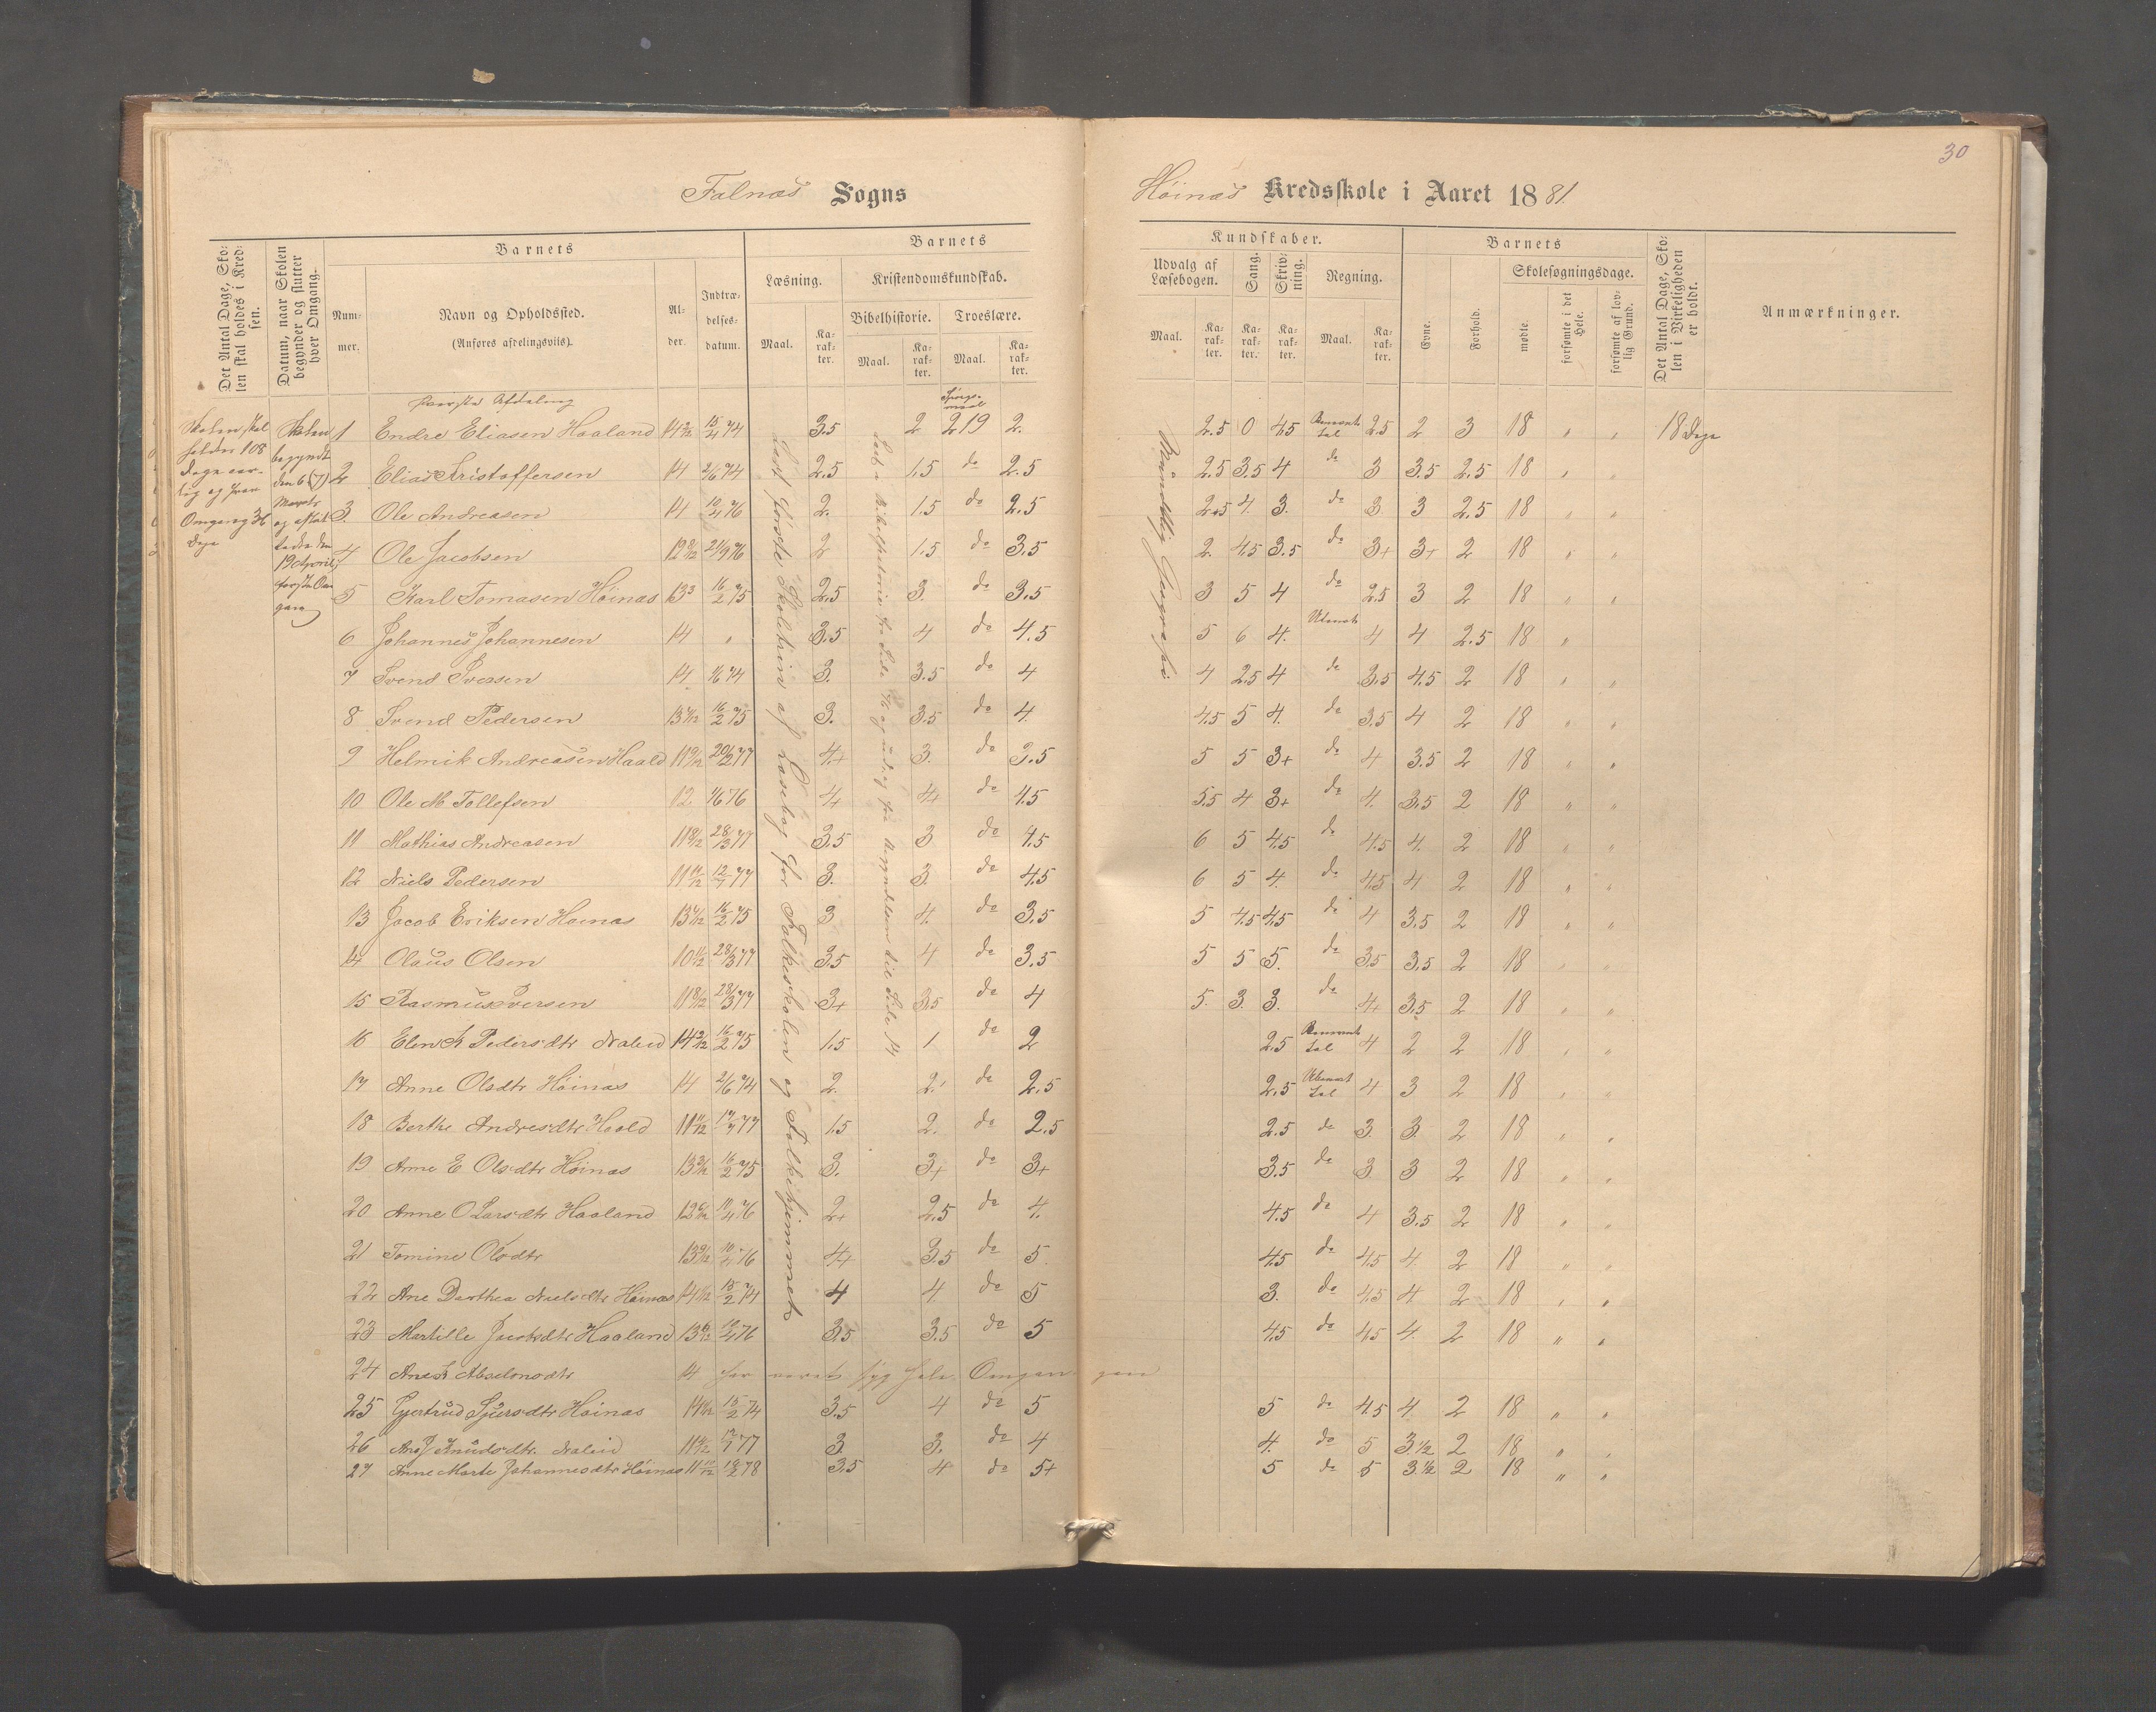 30
Falnæs Sogns
Høinæs Kredsskole i Aaret 1881.
Det Antal Dage, Sko-
len skal holdes i Kred-
sen.
Datum, naar Skolen
begynder og slutter
hver Omgang.
Barnets
Num-
mer.
Navn og Opholdssted.
(Anføres afdelingsviis).
Al-
der.
Indtræ-
delses-
datum.
Barnets
Læsning.
Maal.
Ka-
rak-
ter.
Kristendomskundskab.
Bibelhistorie.
Maal.
Ka-
rak-
ter.
Troeslære.
Maal.
Ka-
rak-
ter.
Kundskaber.
Udvalg af
Læsebogen.
Maal.
Ka-
rak-
ter.
Sang.
Ka-
rak-
ter.
Skriv-
ning.
Ka-
rak-
ter.
Regning.
Maal.
Ka-
rak-
ter.
Barnets
Evne.
Forhold.
Skolesøgningsdage.
mødte.
forsømte i det
Hele.
forsømte af lov-
lig Grund.
Det Antal Dage, Sko-
len i Virkeligheden
er holdt.
Anmærkninger.
Skolen skal
holdes 108
Dage aar-
lig og hver
Omgang
Dage
Skolen
begyndte
den 6 (7)
Marts
og
den
19 April
første Om
gang
første Afdeling
Spørgs-
maal
1 Endre Eliasen Haaland 14 15/4 74 3.5 2 219 2. 2.5 0 4.5 2.5 2 3 18 " " 18 Dage
2 Elias Kristoffersen 14 2/6 74 2.5 1.5 do 2.5 2.5 3.5 4 do 3 3.5 2.5 18 " "
3. Ole Andreasen 14 10/4 76 2. 1.5 do 2.5 2.5 4. 3. do 3. 3 2.5 18 " "
4 Ole Jacobsen 12 21/9 76 2 1.5 do 3.5 2 4.5 3.5 do 3+ 3+ 2 18 " "
5 Karl Tomasen Høinæs 13 16/2 75 2.5 3. do 3.5 3 5 4 do 2.5 3 2 18 " "
6 Johannes Johannesen 14 " 3.5 4 do 4.5 5 6 4. 4 4 2.5 18 "
7 Svend Iversen 14 1/6 74 3. 3.5 do 4 4 2.5 4 do 3.5 4.5 2 18 " "
8 Svend Pedersen 13 16/2 75 3. 3.5 do 4. 4.5 5 4. do 3.5 4 2 18 " "
9 Helmik Andreasen Haald 11 20/12 77 4+ 3. do 3.5 5 5 3+ do 4 3.5 2 18 " "
10 Ole M Tollefsen 12 1/6 76 4+ 4+ do 4.5 5.5 4 3+ do 4. 3.5 2 18 " "
11 Mathias Andreasen 11 8/12 28/3 77 3.5 3 do 4.5 6 5 4.5 do 4.5 4. 2 18 " "
12 Niels Pedersen 11 12/7 77 3. 3. do 4.5 6 5 4. do 4.5 4 2 18 " "
13 Jacob Eriksen Høinæs 13 16/2 75 3 4. do 3.5 5 4.5 4.5 do 4 3.5 2 18 " "
14 Olaus Olsen 10 28/3 77 3.5 4 do 3.5 5 5 5. do 3.5 3.5 2 18 " "
15 Rasmus Iversen 11 8/12 28/3 77 3+ 3.5 do 4 5. 3. 3. do 4+ 3.5 2 18 " "
16 Elen K Pedersdtr 14 16/2 75 1.5 1 do 2 2.5 4 2 2 18 " "
17 Anne Olsdtr Høinæs 14 2/6 74 2. 2. do 2.5 2.5 4 3 2 18 " "
18 Berthe Andresdtr Haald 11 77 1.5 2. do 2.5 2.5 do 3. 3. 2 18 " "
19 Anne E Olsdtr Høinæs 13 16/2 75 3. 3+ do 3+ 3.5 do 3 3 2 18 " "
20 Anne O Larsdtr Haaland 12 76 2+ 2.5 do 4. 4.5 do 4 3.5 2 18 " "
21 Tomine Olsdtr 13 10/4 76 4+ 3.5 do 5. 4.5 do 4.5 4. 2 18 " "
22 Ane Dorthea Nielsdtr Høinæs 14 15/2 74 4 4. do 5 3. do 4.5 4 2 18 " "
23 Martille Haaland 13 10/4 76 3.5 3.5 do 5 4.5 do 4.5 4. 2 18 " "
24 Ane K Absalonsdtr 14 har været syg hele Omgangen
25 Gjertrud Sjursdtr Høinæs 14 15/2 74 3.5 4 do 5 5 do 4.5 4. 2 18 " "
26 Knudsdtr. 11 77 3. 3. do 4 4. do 5 3.1/2 2 18 " "
27 Anne Marte Johannesdtr Høinæs 11 78 3.5 4 do 5+ 5 do 5 3.1/2 2 18 " "
Læst første Skoletrin af Læsebog for Folkeskolen og Folkehjemmet
Mundtlig Geografi